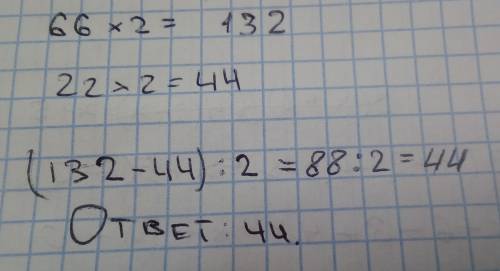 66 × 2 = 132
22 × 2 = 44
(132 - 44) : 2 = 88 : 2 = 44
Ответ: 44.